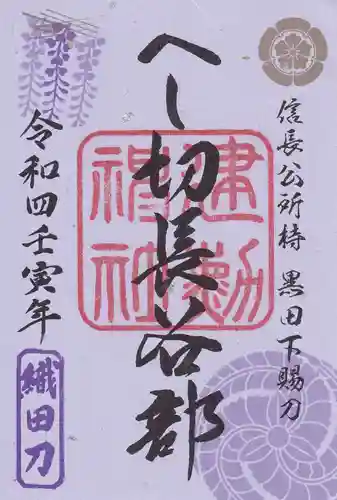 信長公所持 黒田下賜刀
へし切長谷部
建勲
神社
令和四壬寅年
織田刀